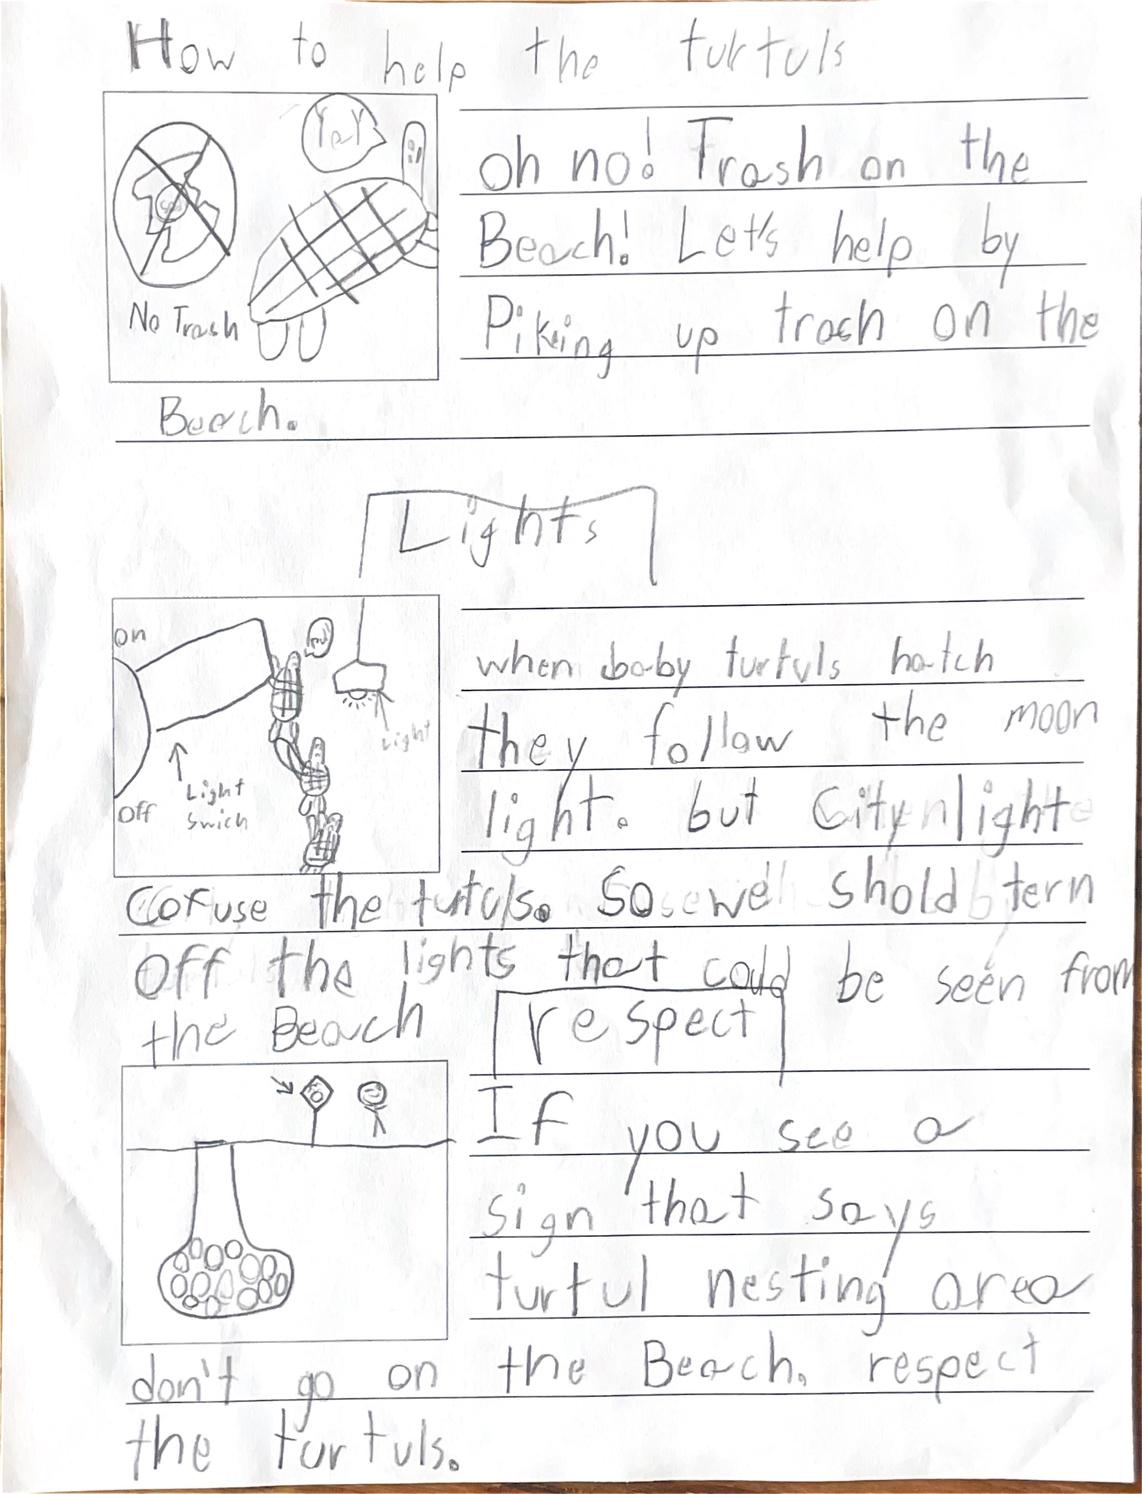 How to help the turtuls
Yay
No Trash
oh no! Trash on the
Beach! Let's help by
Piking up trash on the
Beach.
Lights
on
Off
Light
Swich
Light
when baby turtuls hatch
they follow the moon
light. but City light
Cofuse the turtuls. So we shold tern
Off the lights that could be seen from
the Beach
respect
If you see a
sign that says
turtul nesting area
don't go on the Beach. respect
the turtuls.